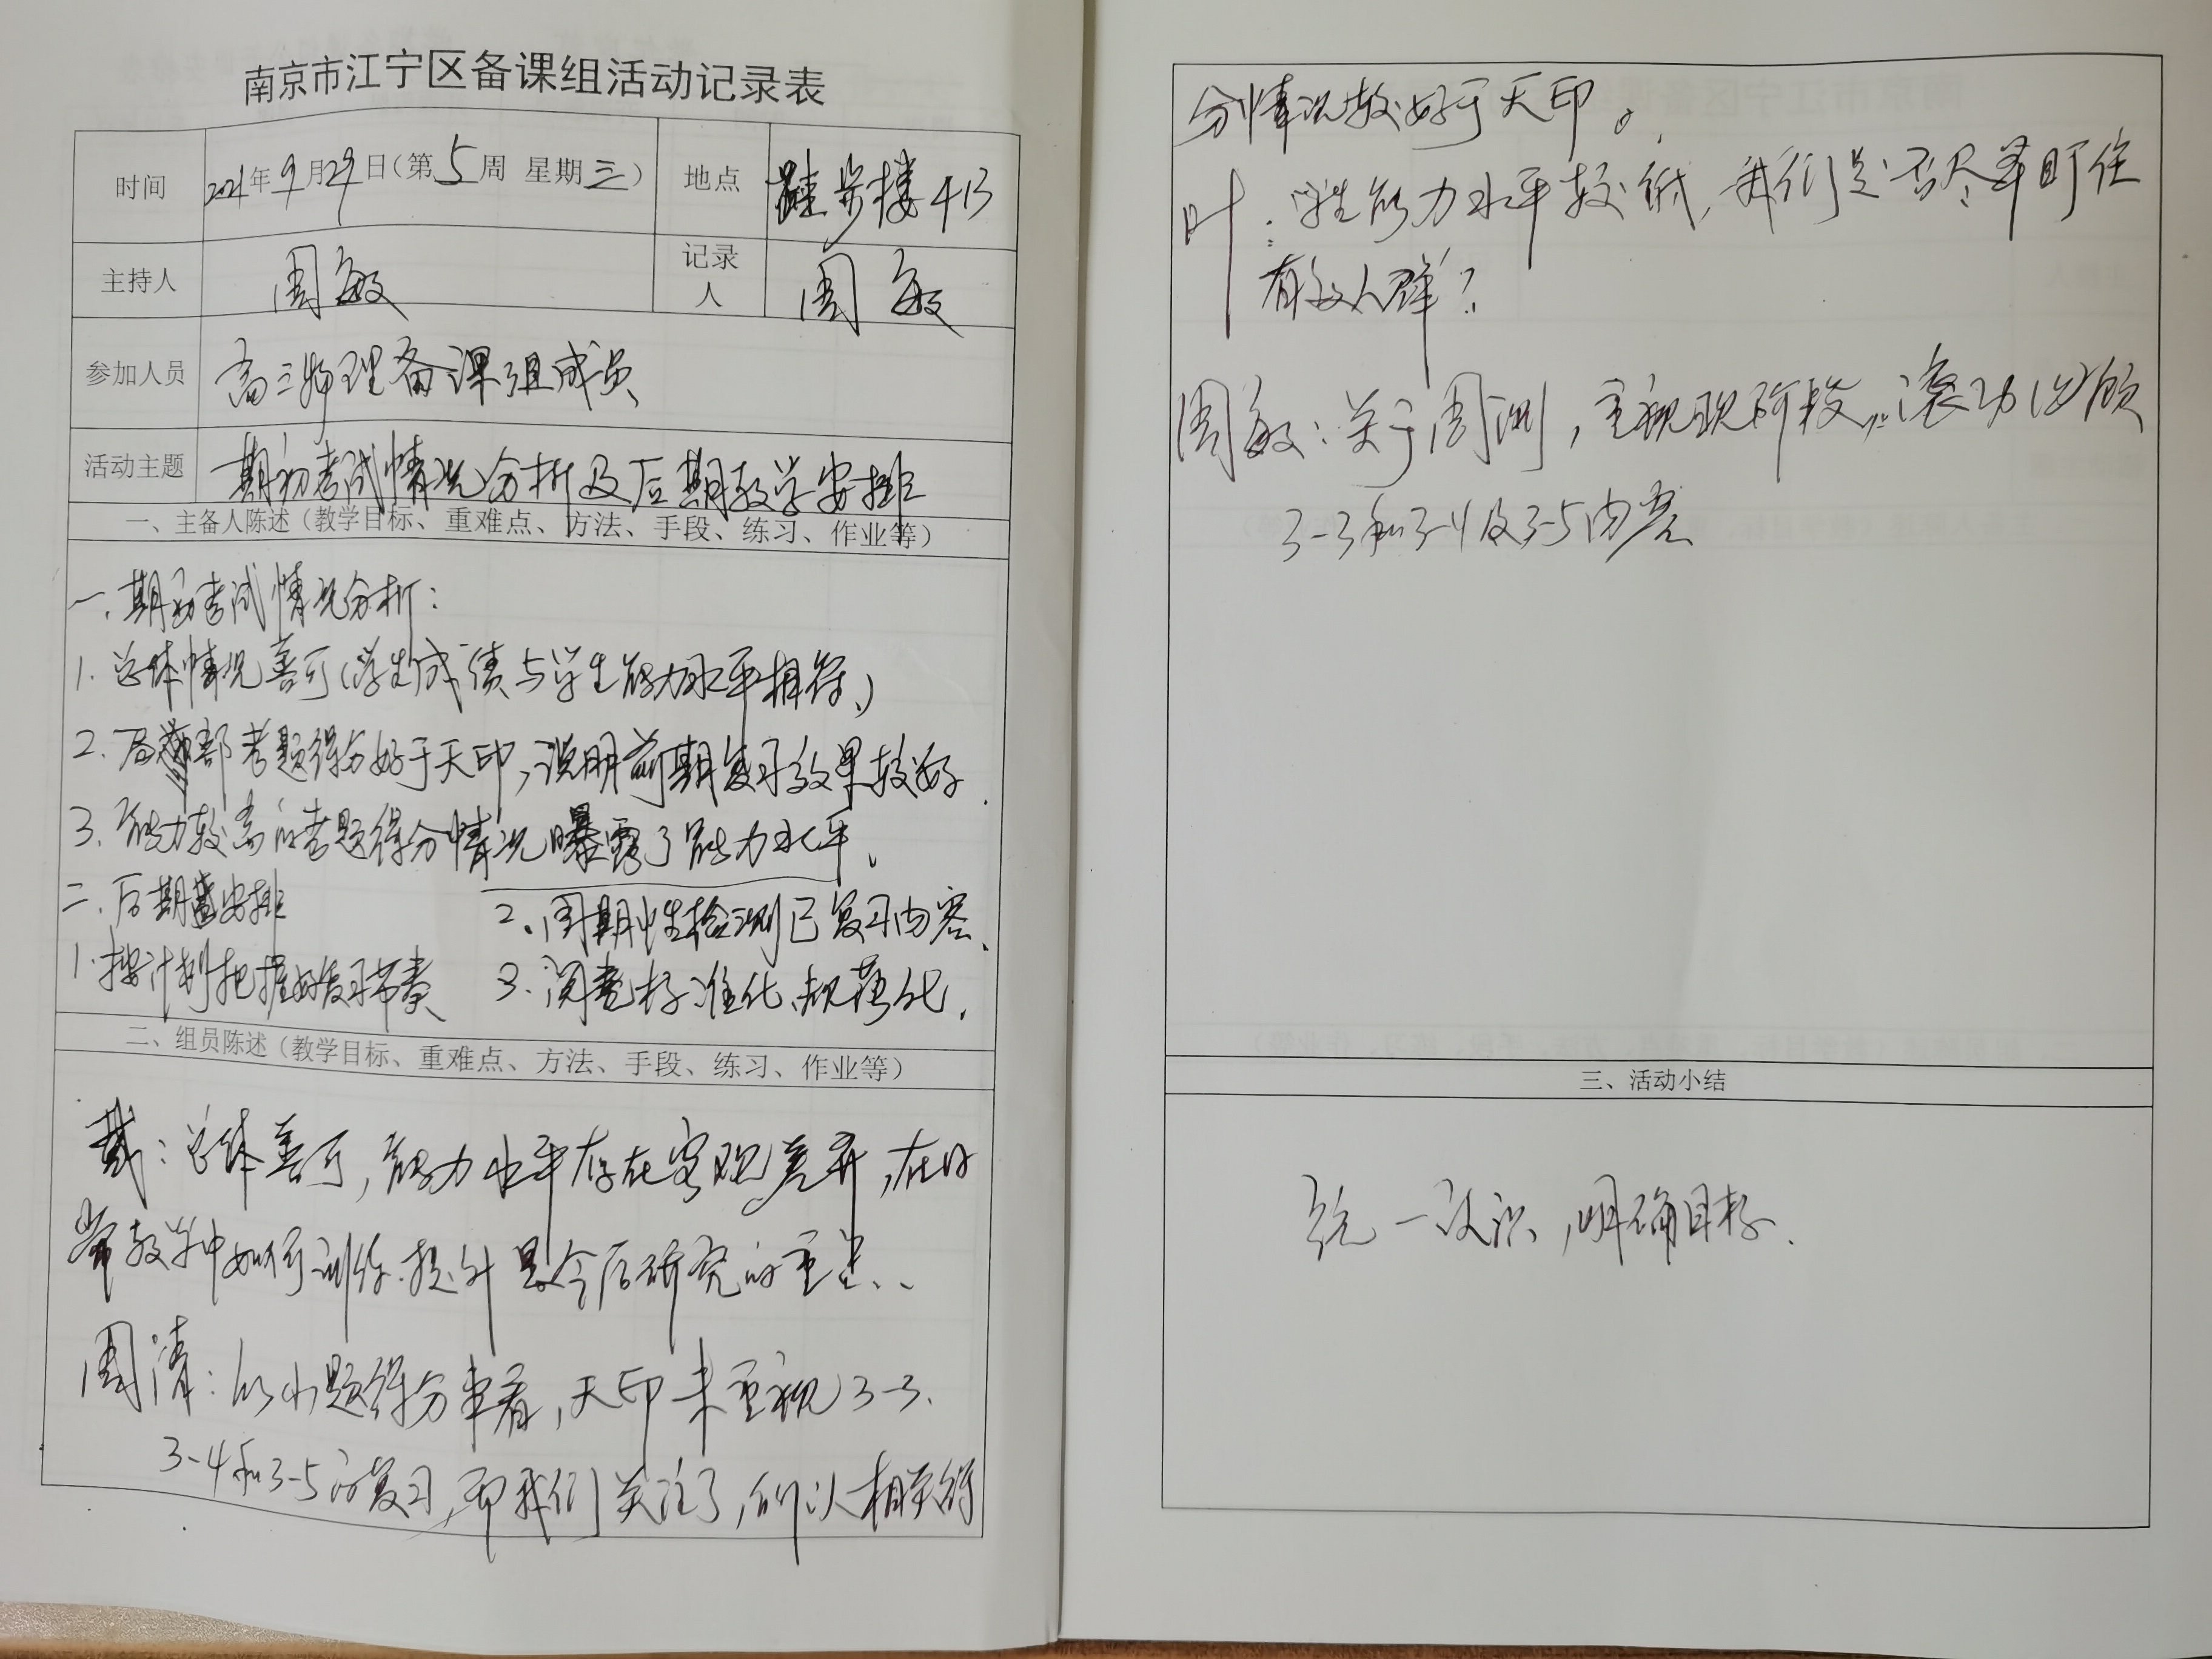 南京市江宁区备课组活动记录表
时间 2021年9月29日（第5周 星期三） 地点 跬步楼413
主持人 周敏 记录人 周敏
参加人员 高三物理备课组成员
活动主题 期初考试情况分析及后期教学安排
一、主备人陈述（教学目标、重难点、方法、手段、练习、作业等）
一.期初考试情况分析：
1.总体情况善可(学生成绩与学生能力水平相符、)
2.局部考题得分好于天印,说明前期复习效果较好.
3.能力较高的考题得分情况曝露了能力水平、
二.后期安排
1.按计划把握好复习节奏
2、周期性检测已复习内容、
3.阅卷标准化、规范化.
二、组员陈述（教学目标、重难点、方法、手段、练习、作业等）
戴：总体善可,能力水平存在客观差异,在日
常教学中如何训练、提升是今后研究的重点、、
周清：从小题得分来看,天印未重视3-3.
3-4和3-5的复习,而我们关注了,所以相关得
分情况较好于天印。
叶：学生能力水平较低,我们是否尽早盯住
有效人群?
周敏：关于周测,重视现阶段,滚动回顾
3-3和3-4及3-5内容、
三、活动小结
统一认识,明确目标.